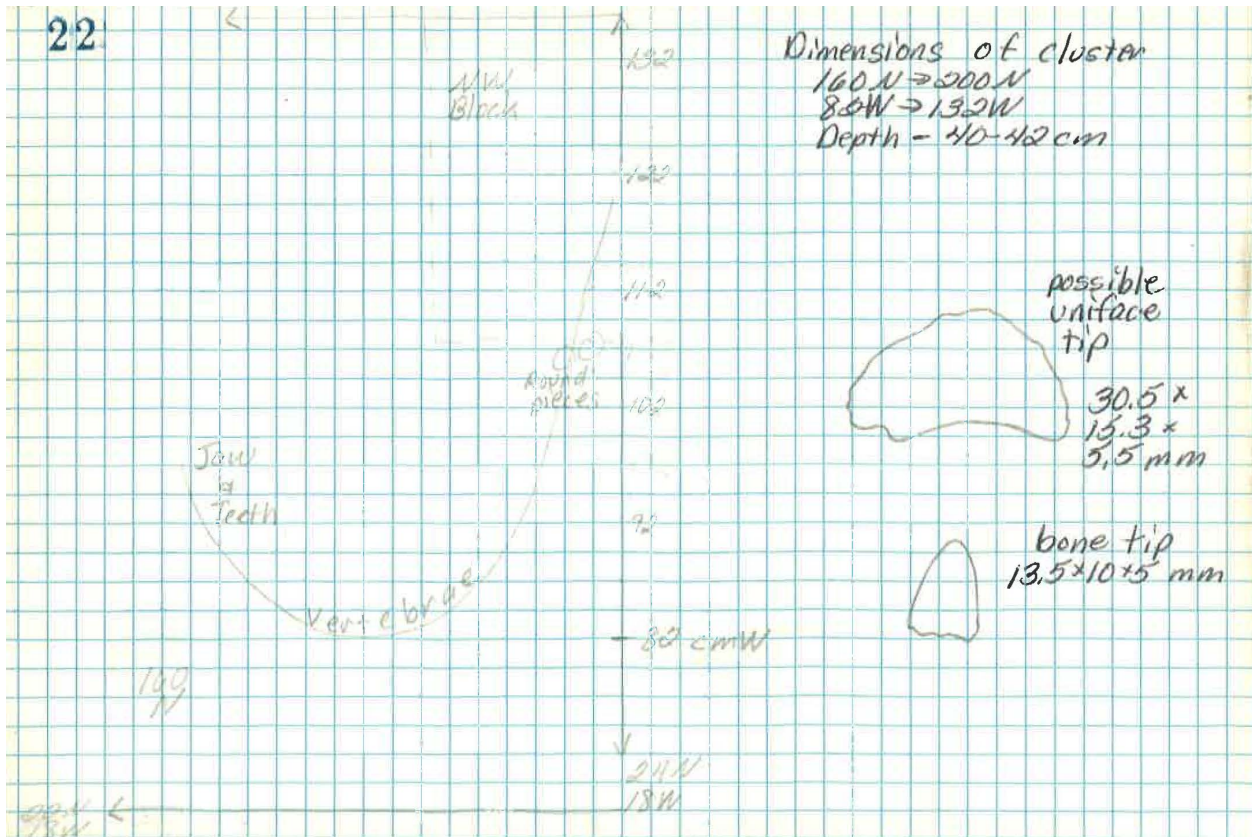 22
132
NW
Block
122
112
Round
pieces
102
Jaw
&
Teeth
92
Vertebrae
82 cmW
160
N
24N
18W
22N
18W
Dimensions of cluster
160N → 200N
82W → 132W
Depth - 40-42 cm
possible
uniface
tip
30.5 x
15.3 x
5.5 mm
bone tip
13.5 x 10 x 5 mm